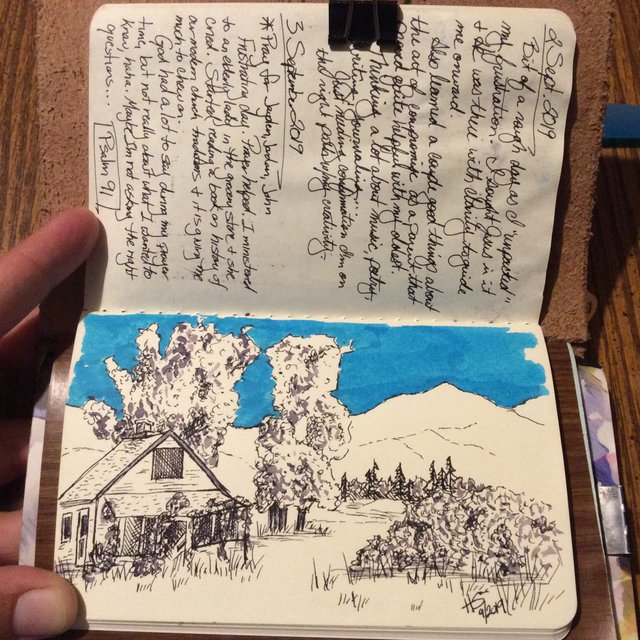 2 Sept. 2019
Bit of a rough day as I "unpacked"
my frustration. I sought Jesus in it
& He was there with clarity to guide
me onward.
Also learned a couple good things about
the act of compromise as a that
quite helpful with my oldest.
Thinking a lot about music, poetry,
writing, journaling...
Just needing confirmation I'm on
the right path w/my creativity.
3 September 2019
* Pray for Jayden, Jordan, John
Frustrating day. Prayer helped. I ministered
to an elderly lady in the grocery store & she
cried. Started reading a book on history of
our modern church troubles & it is giving me
much to chew on.
God had a lot to say during my prayer
time, but not really about what I wanted to
know, haha. Maybe I'm not asking the right
questions... Psalm 91